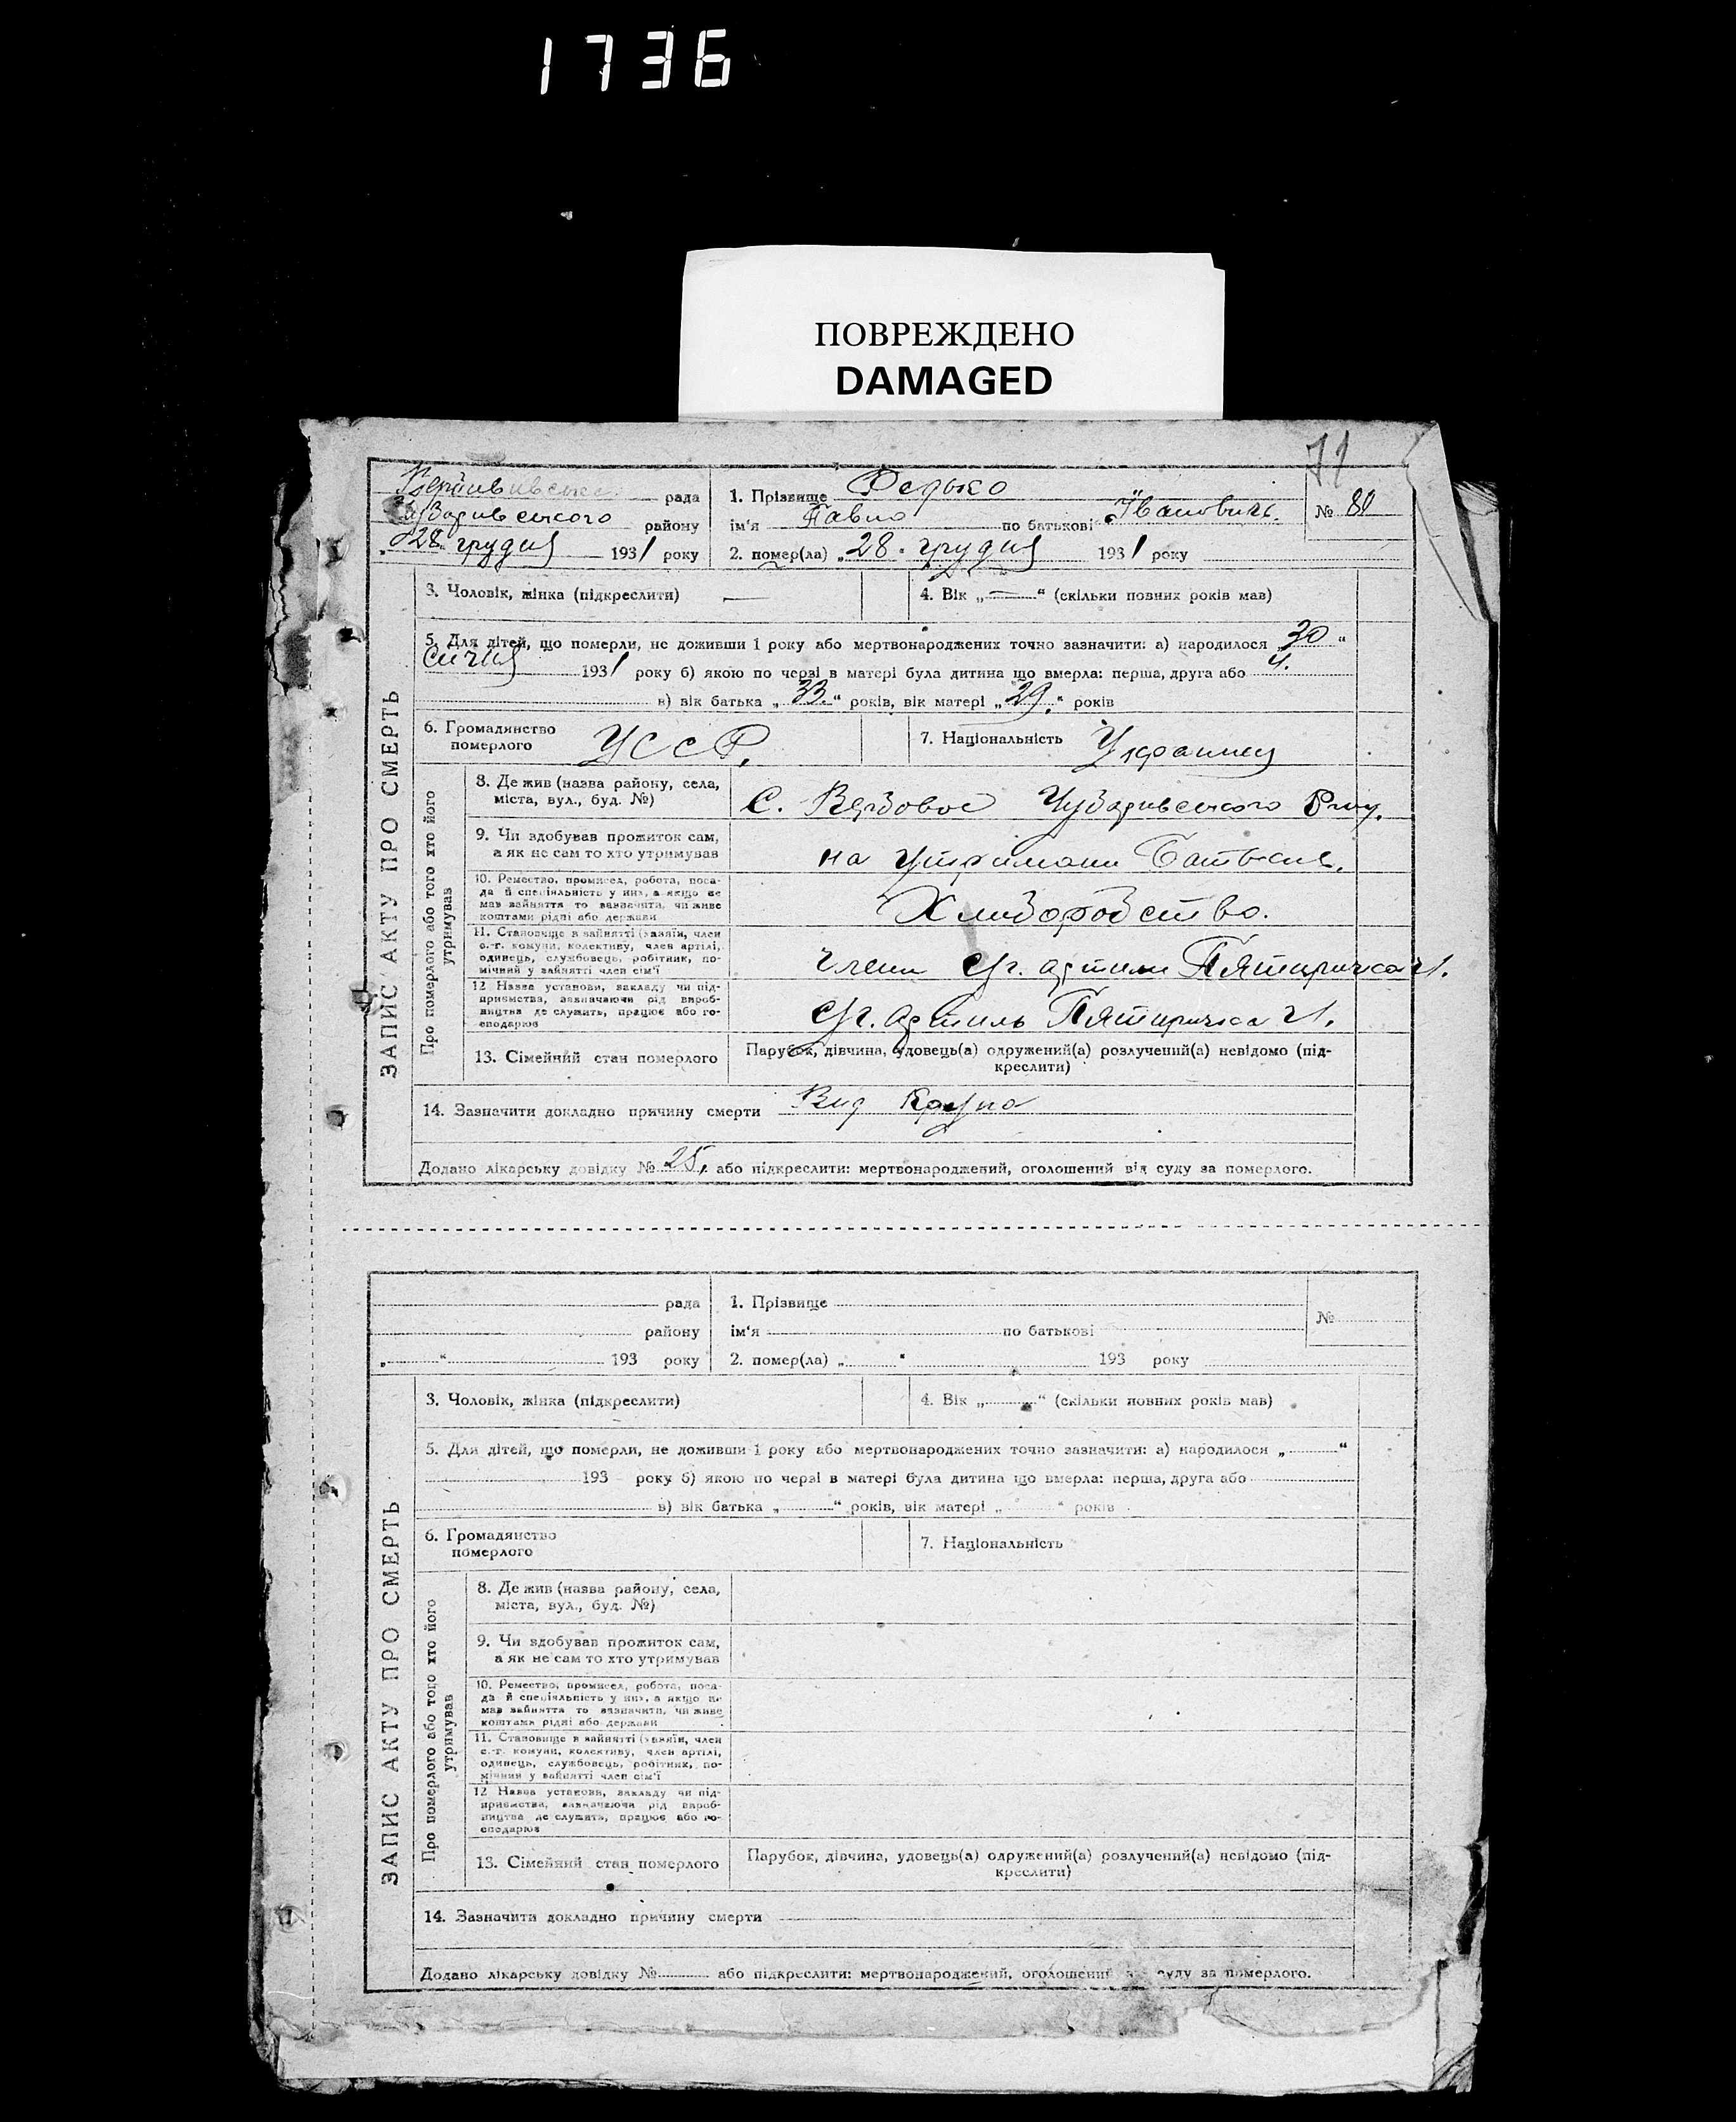 1736
ПОВРЕЖДЕНО
DAMAGED
71
рада
району
„28" грудня 1931 року
1. Прізвище Федько
ім'я Павло по батькові Івановичь.
№ 80
2. помер(ла) „28" грудня 1931 року
ЗАПИС АКТУ ПРО СМЕРТЬ
3. Чоловік, жінка (підкреслити) —
4. Вік „—" (скільки повних років мав)
5. Для дітей, що померли, не доживши 1 року або мертвонароджених точно зазначити: а) народилося „30"
сичня 1931 року б) якою по черзі в матері була дитина що вмерла: перша, друга або 4.
в) вік батька „33." років, вік матері „29." років
6. Громадянство
померлого
УССР.
7. Національність Украинец
Про померлого або того хто його
утримував
8. Де жив (назва району, села,
міста, вул., буд. №)
С. Вербовое Чубаривського Р-ну.
9. Чи здобував прожиток сам,
а як не сам то хто утримував
на утримани батькив.
10. Ремество, промисел, робота, поса-
да й спеціяльність у них, а якщо не
мав зайняття то зазначити, чи живе
коштами рідні або держави
Хлиборобство.
11. Становище в зайнятті (хазяїн, член
с.-г. комуни, колективу, член артілі,
одинець, службовець, робітник, по-
мічний у зайнятті член сім'ї
члени с/г. артили Пятиричка
12 Назва установи, закладу чи під-
приємства, зазначаючи рід вироб-
ництва де служить, працює або го-
сподарює
с/г. артиль Пятиричка
13. Сімейний стан померлого
Парубок, дівчина, удовець(а) одружений(а) розлучений(а) невідомо (під-
креслити)
14. Зазначити докладно причину смерти Вид Крупа
Додано лікарську довідку № 25, або підкреслити: мертвонароджений, оголошений від суду за померлого.
рада
району
„ " 193 року
1. Прізвище
ім'я по батькові
№
2. помер(ла) „ " 193 року
ЗАПИС АКТУ ПРО СМЕРТЬ
3. Чоловік, жінка (підкреслити)
4. Вік „ " (скільки повних років мав)
5. Для дітей, що померли, не доживши 1 року або мертвонароджених точно зазначити: а) народилося „ "
193 року б) якою по черзі в матері була дитина що вмерла: перша, друга або
в) вік батька „ " років, вік матері „ " років
6. Громадянство
померлого
7. Національність
Про померлого або того хто його
утримував
8. Де жив (назва району, села,
міста, вул., буд. №)
9. Чи здобував прожиток сам,
а як не сам то хто утримував
10. Ремество, промисел, робота, поса-
да й спеціяльність у них, а якщо не
мав зайняття то зазначити, чи живе
коштами рідні або держави
11. Становище в зайнятті (хазяїн, член
с.-г. комуни, колективу, член артілі,
одинець, службовець, робітник, по-
мічний у зайнятті член сім'ї
12 Назва установи, закладу чи під-
приємства, зазначаючи рід вироб-
ництва де служить, працює або го-
сподарює
13. Сімейний стан померлого
Парубок, дівчина, удовець(а) одружений(а) розлучений(а) невідомо (під-
креслити)
14. Зазначити докладно причину смерти
Додано лікарську довідку № або підкреслити: мертвонароджений, оголошений суду за померлого.